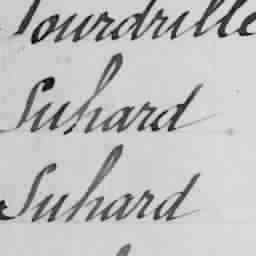 Tourdrille
Suhard
Suhard